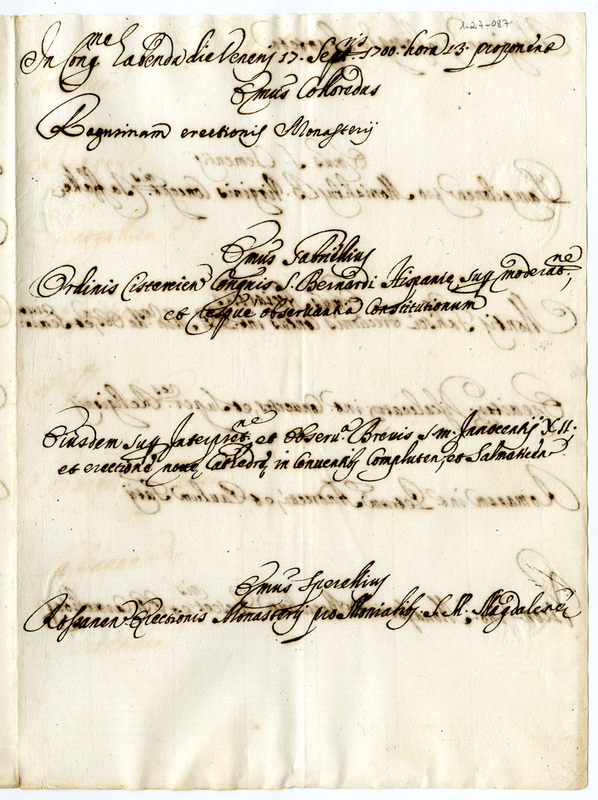 1-27-087
In Cong.ne habenda die Veneris 17. Sept.ris 1700. hora 13. proponent
Em̄us Colloredus
Ragusinam erectionis Monasterij
Em̄us Gabriellius
Ordinis Cistercien Congnis S. Bernardi Hispanie sup moderat.ne,
et observantia Constitutionum
Eiusdem sup Interpret.ne et observ.a Brevis s. m. Innocentij XII.
et erectione noue Cathedre, in Conuentib. Compluten, et Salmaticen
Em̄us Sperellius
Rossanen Erectionis Monasterij pro Monialib. S. M. Magdalene